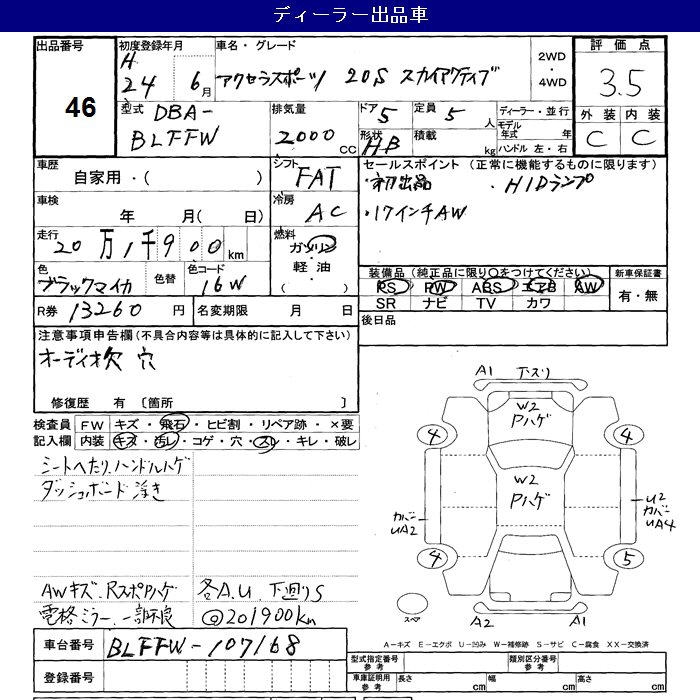 ディーラー出品車
出品番号
46
初度登録年月
H
24 6月
車名・グレード
アクセラスポーツ 20S スカイアクティブ
2WD
・
4WD
評価点
3.5
外装 内装
C C
型式
DBA-
BLFFW
排気量
2000 CC
ドア 5
形状 HB
定員 5 人
積載 kg
ディーラー・並行
モデル年式 年
ハンドル 左・右
車歴
自家用・( )
シフト
FAT
セールスポイント (正常に機能するものに限ります)
・初出品 ・HIDランプ
・17インチAW
車検
年 月( 日)
冷房
AC
走行
20万1千900km
燃料
ガソリン
軽油
( )
色
ブラックマイカ
色替
色コード
16W
装備品(純正品に限り○をつけてください)
PS PW ABS エアB AW
SR ナビ TV カワ
新車保証書
有・無
R券 13260 円
名変期限 月 日
後日品
注意事項申告欄(不具合内容等は具体的に記入して下さい)
オーディオ欠 穴
修復歴 有 〔箇所 〕
検査員
記入欄
FW キズ・飛石・ヒビ割・リペア跡・×要
内装 キズ・汚レ・コゲ・穴・スレ・キレ・破レ
シートヘタリ、ハンドルハゲ
ダッシュボード浮き
AWキズ、RスポAハゲ 各A.U、下廻りS
電格ミラー一部不良 @201900km
A1 下スリ
W2
Pハゲ
4 4
W2
Pハゲ
カバー
UA2
U2
カバー
UA4
4 5
スペア
A2 A1
A-キズ E-エクボ U-凹み W-補修跡 S-サビ C-腐食 XX-交換済
車台番号 BLFFW-107168
登録番号
型式指定番号
参考
類別区分番号
参考
車庫証明用
参考
長さ cm 幅 cm 高さ cm